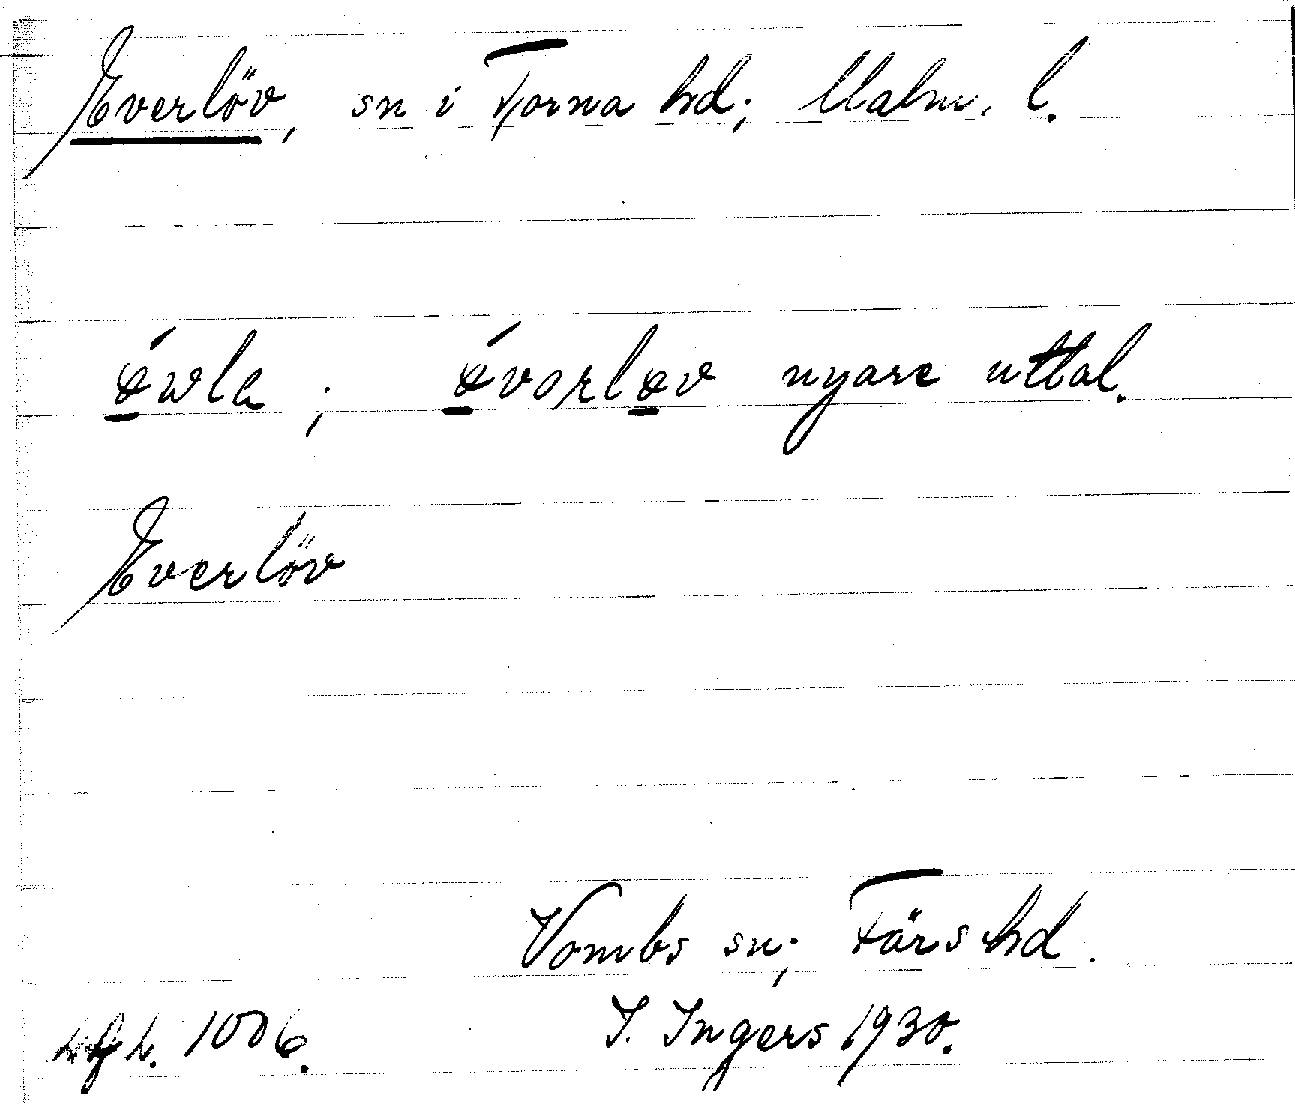 Everlöv, sn i Torna hd; Malm. l.
ǿ̲wla ; ǿ̲vərlø̲v nyare uttal.
Everlöv
Vombs sn; Färs hd.
1006. I. Ingers 1930.